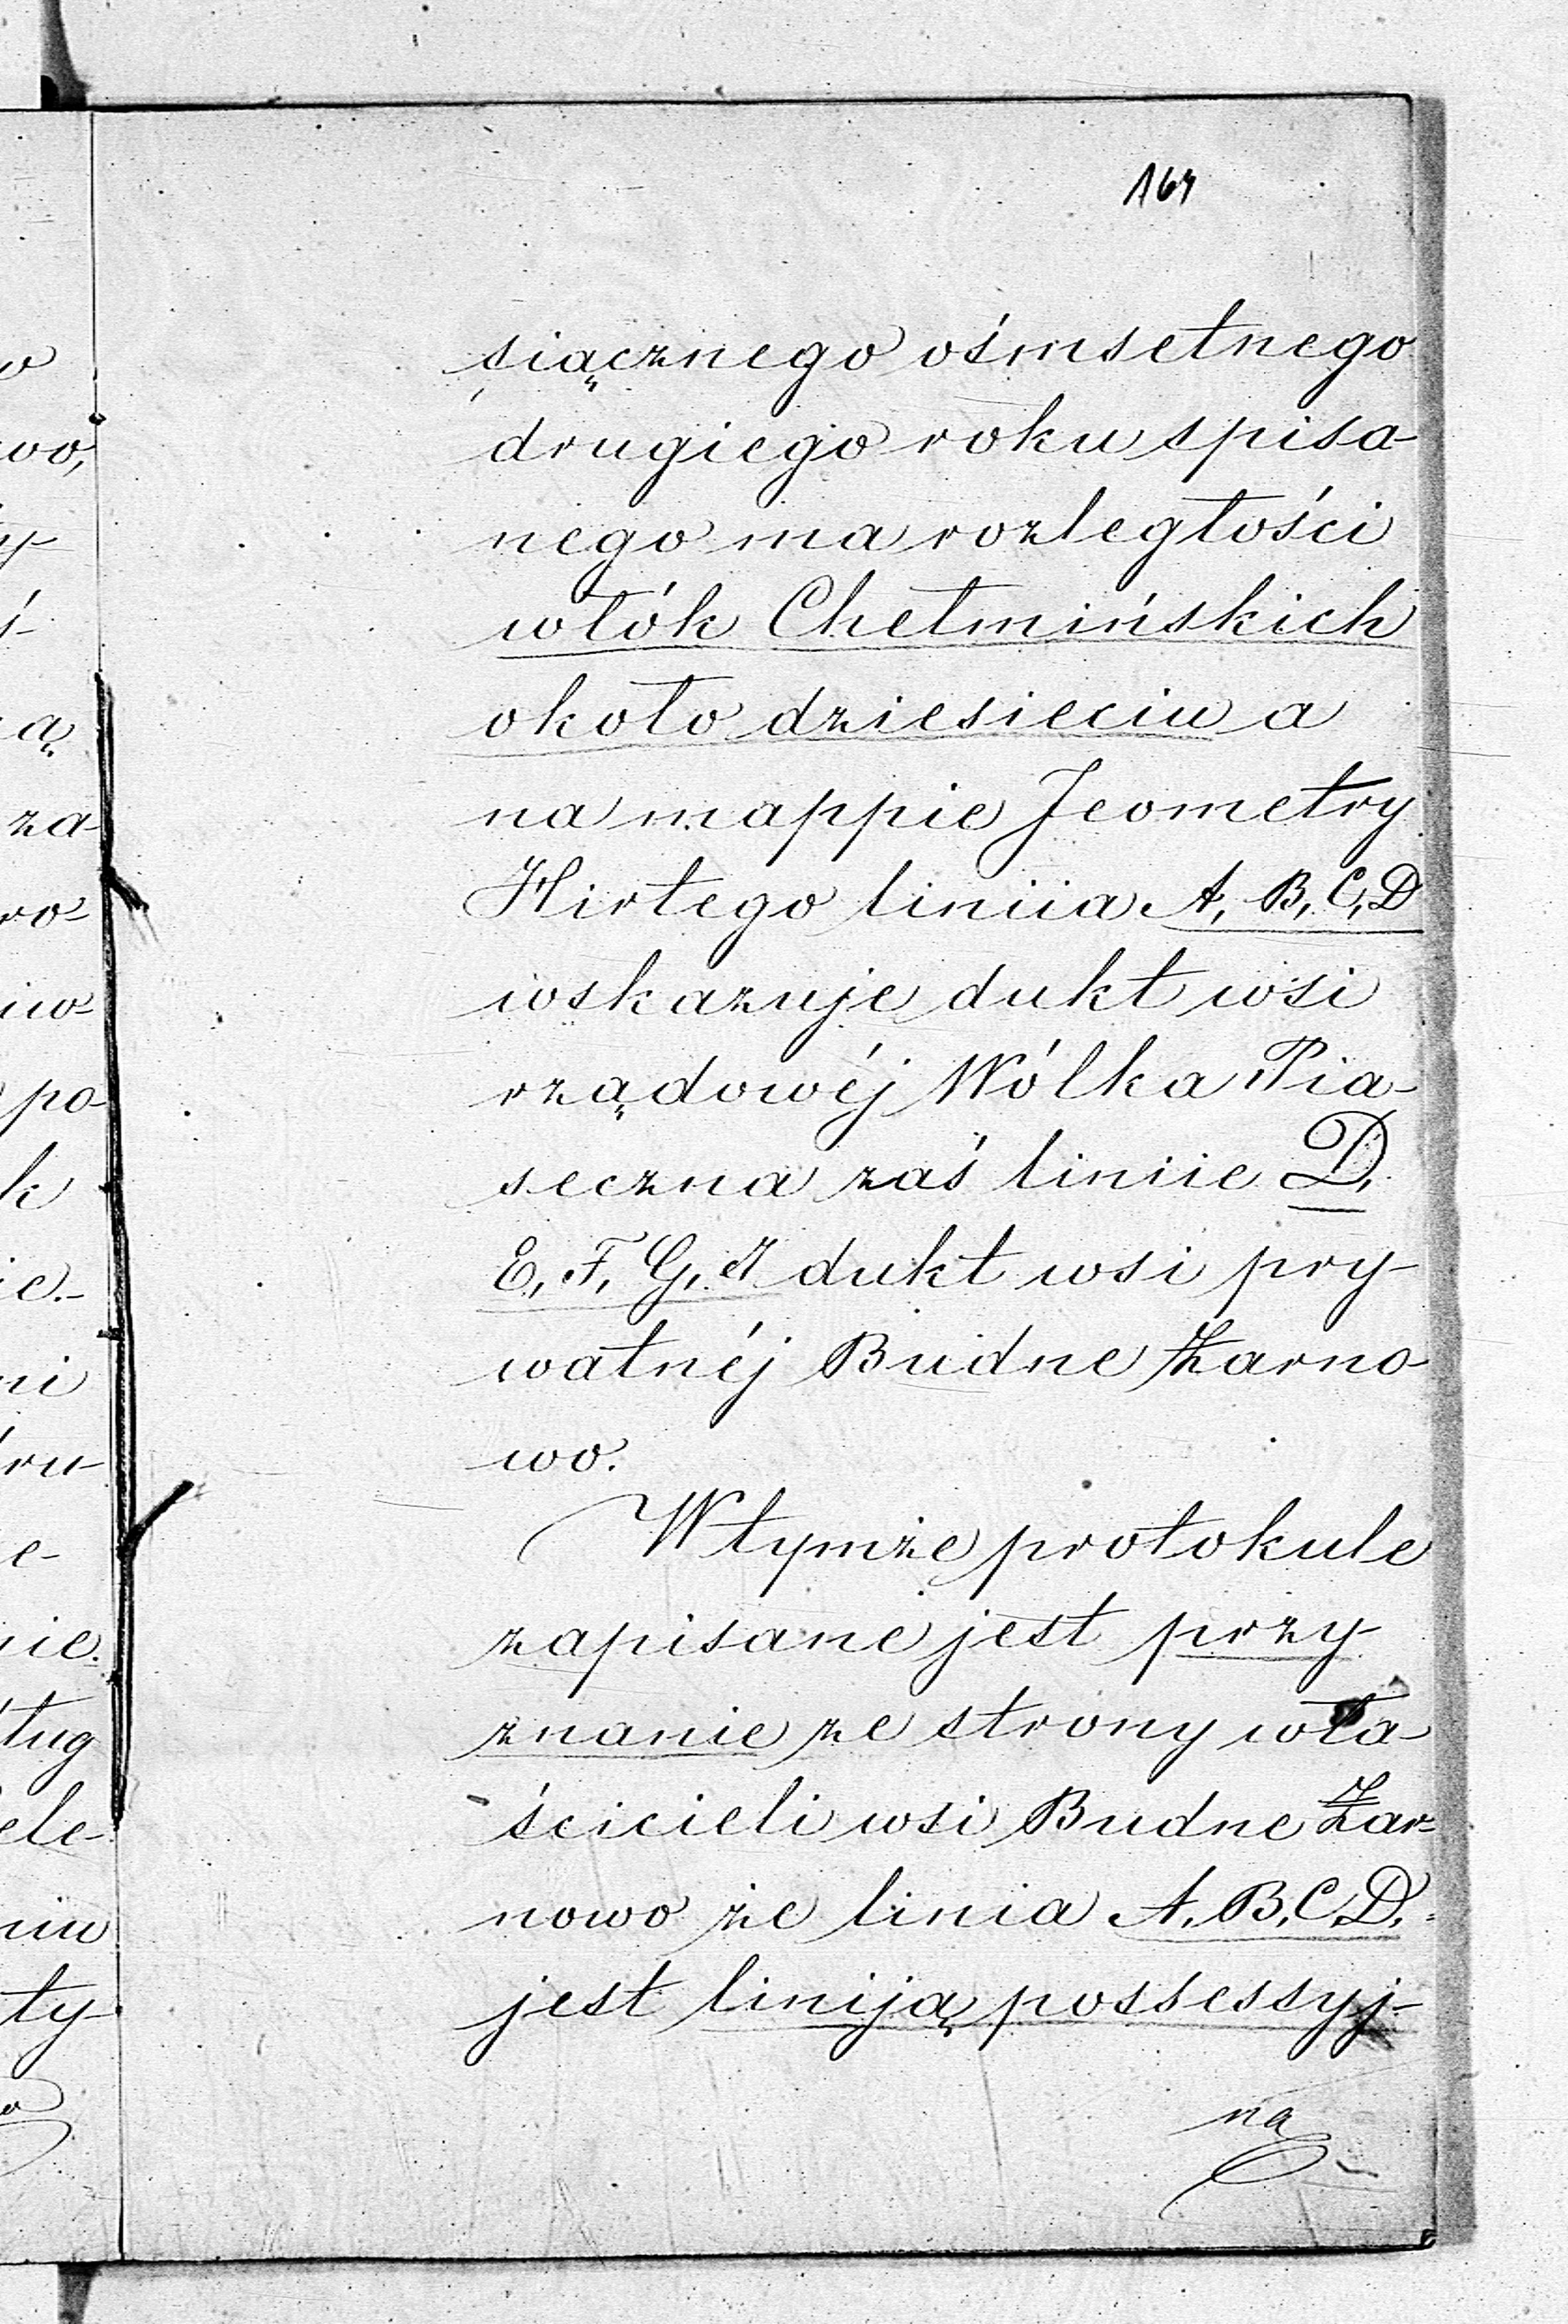 164
siącznego ośmsetnego
drugiego roku spisa-
nego ma rozległości
włók Chełmińskich
około dziesieciu a
na mappie Jeometry
Hirtego liniia A, B, C, D
wskazuje dukt wsi
rządowéj Wólka Pia-
seczna zaś liniie D,
E, F, G, I dukt wsi pry-
watnéj Budne Żarno-
wo.
W tymże protokule
zapisane jest przy-
znanie ze strony wła-
ścicieli wsi Budne Żar-
nowo że linia A, B, C, D,
jest liniją possessyj-
na